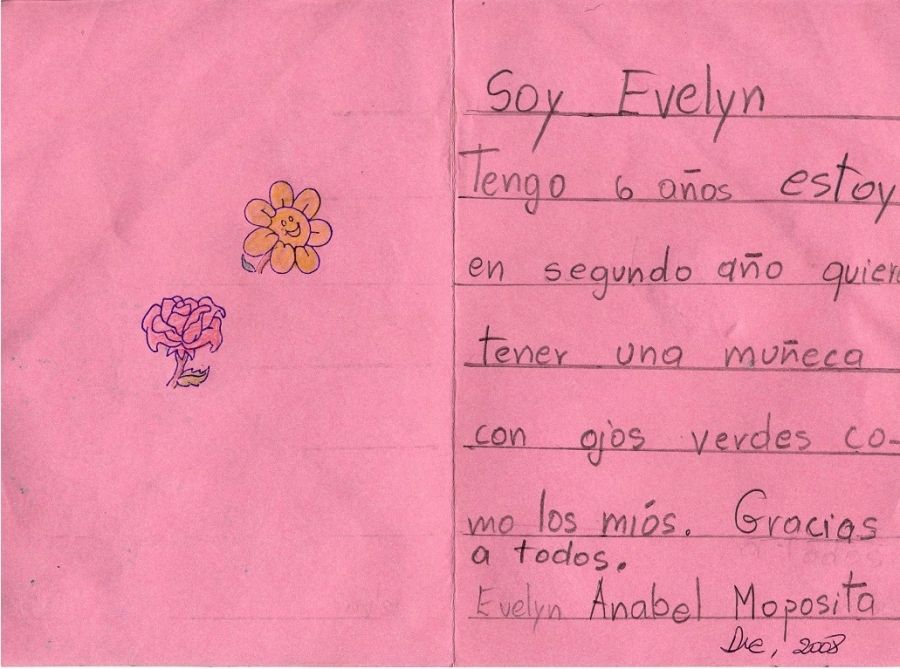 Soy Evelyn
Tengo 6 años estoy
en segundo año quiero
tener una muñeca
con ojos verdes co-
mo los miós. Gracias
a todos.
Evelyn Anabel Moposita
Dic, 2008